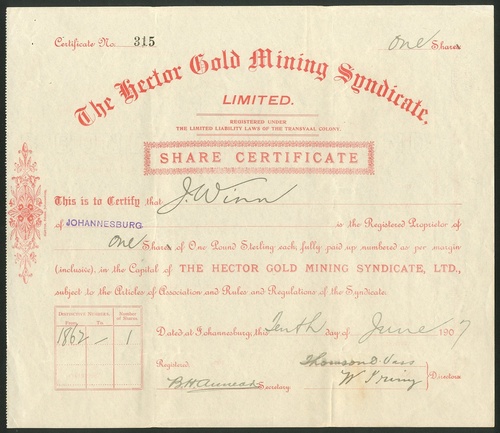 Certificate No. 315 One Share
The Hector Gold Mining Syndicate.
LIMITED.
REGISTERED UNDER
THE LIMITED LIABILITY LAWS OF THE TRANSVAAL COLONY.
SHARE CERTIFICATE
This is to Certify that J. Winn
of JOHANNESBURG is the Registered Proprietor of
One Share of One Pound Sterling each, fully paid up, numbered as per margin
(inclusive), in the Capital of THE HECTOR GOLD MINING SYNDICATE, LTD.,
subject to the Articles of Association and Rules and Regulations of the Syndicate.
Distinctive Numbers. Number of Shares.
From To
1862 – 1
Dated at Johannesburg, this Tenth day of June 1907
Registered,
Secretary.
W. Irving
Directors.